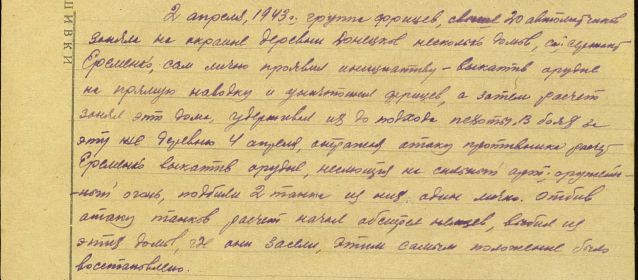 ШИВКИ
2 апреля, 1943 г. группа фрицев, свыше 20 автоматчиков
заняла на окраине деревни Донецков несколько домов, сержант
Еременко, сам лично проявил инициативу – выкатив орудие
на прямую наводку и уничтожил фрицев, а затем расчет
занял эти дома, удерживал их до подхода пехоты. В боях за
эту же деревню 4 апреля, отражая атаку противника расчет
Еременко выкатив орудие, несмотря на сильный арт, оружей-
ный огонь, подбили 2 танка из них один лично. Отбив
атаку танков расчет начал немцев, выбил из
этих домов, где они засели, этим самым положение было
восстановлено.